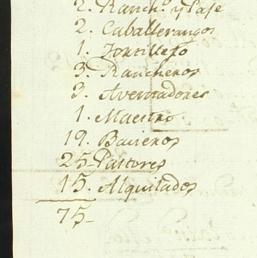 2. Ranch.º y Paje
2. Caballerangos
1. Tortillero
3. Rancheros
3. Aventadores
1. Maestro
19. Baqueros
25- Pastores
15. Alquilados
75-